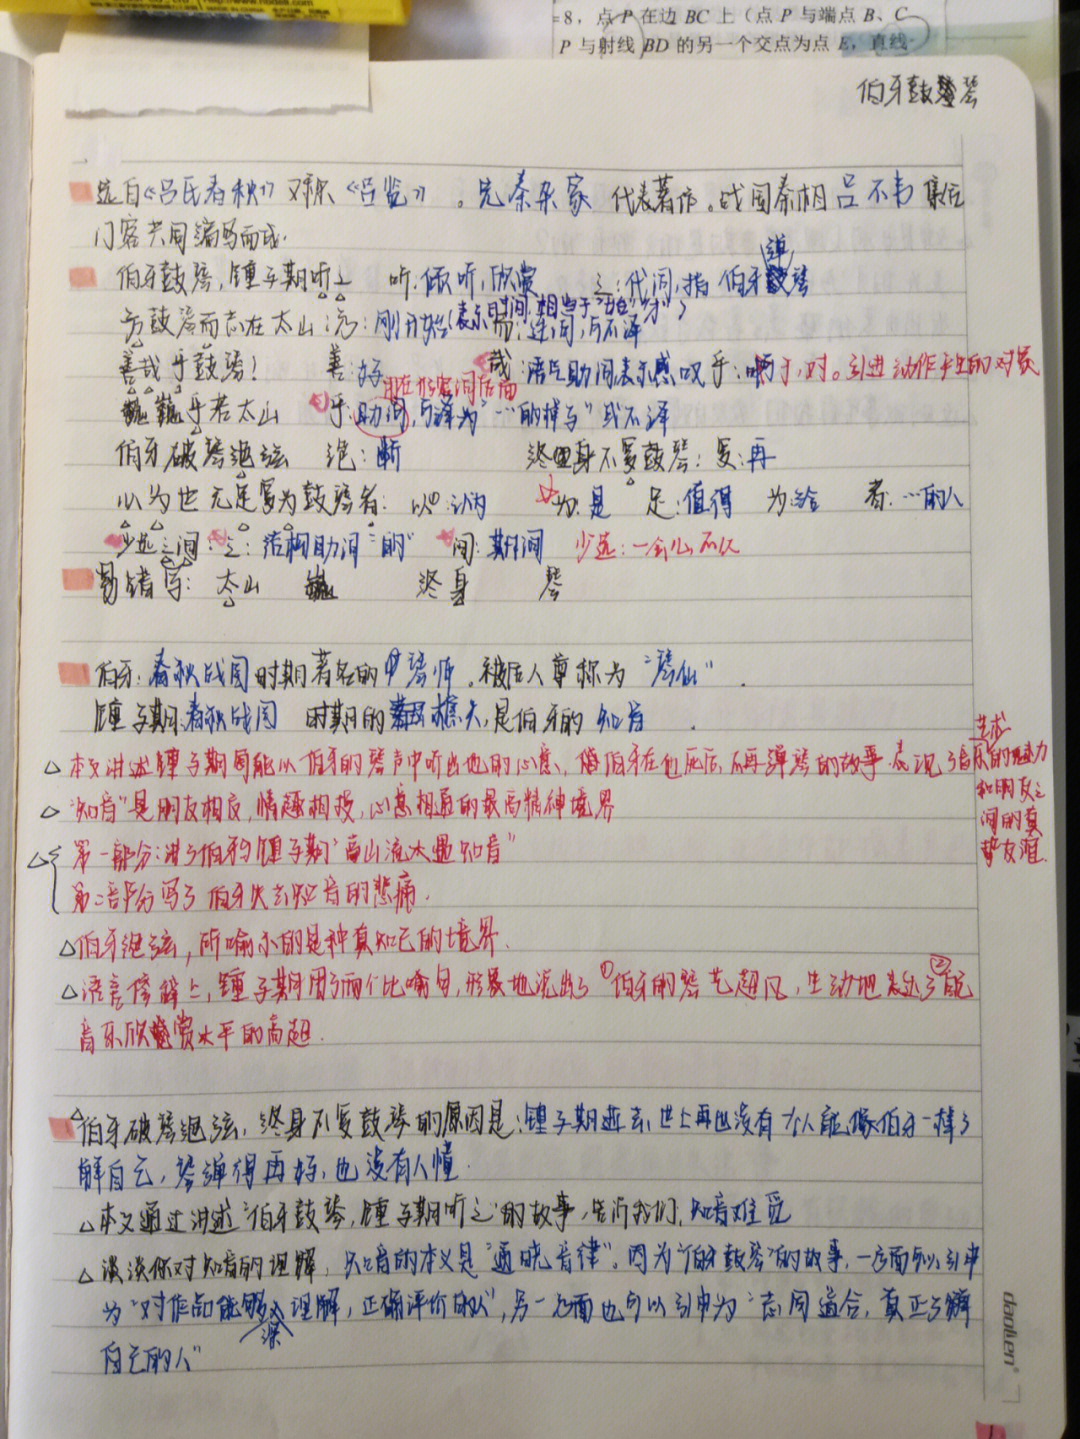 =8，点P在边BC上（点P与端点B、C
P与射线BD的另一个交点为点E，直线
伯牙鼓琴
选自《吕氏春秋》又称《吕览》。先秦杂家 代表著作。战国秦相吕不韦集合
门客共同编写而成.
伯牙鼓琴,锺子期听之 听:倾听,欣赏 之:代词,指伯牙弹琴
方鼓琴而志在太山 方:刚开始(表示时间,相当于"正在""才") 而:连词,可不译
善哉乎鼓琴! 善:好 哉:语气助词表示感叹 乎:于,对。引进动作产生的对象
巍巍乎若太山 乎:助词,可译为"…的样子"或不译
用在形容词后面
伯牙破琴绝弦 绝:断 终身不复鼓琴:复:再
以为世无足复为鼓琴者: 以为:认为 为:是 足:值得 为:给 者:…的人
少选之间:之:结构助词"的" 间:期间 少选:一会儿,不久
易错写: 太山 巍 终身 琴
伯牙:春秋战国时期著名的琴师,被后人尊称为"琴仙".
锺子期:春秋战国 时期的樵夫,是伯牙的 知音.
本文讲述锺子期能从伯牙的琴声中听出他的心意,伯牙在他死后,不再弹琴的故事.表现了音乐的魅力
艺术
和朋友之
间的真
挚友谊.
"知音"是朋友相交,情趣相投,心意相通的最高精神境界
第一部分:讲了伯牙锺子期"高山流水遇知音"
第二部分写了伯牙失去知音的悲痛.
伯牙绝弦,所喻示的是种真知己的境界.
语言修辞上,锺子期用了两个比喻句,形象地流出了①伯牙的琴艺超凡,生动地表达了②
音乐欣赏水平的高超.
伯牙破琴绝弦,终身不复鼓琴的原因是:锺子期逝去,世上再也没有人能像伯牙一样了
解自己,琴弹得再好,也没有人懂.
本文通过讲述"伯牙鼓琴,锺子期听之"的故事,告诉我们,知音难觅
谈谈你对知音的理解,知音的本义是"通晓音律".因为"伯牙鼓琴"的故事,一方面可以引申
为"对作品能够深入理解,正确评价的人",另一方面也可以引申为"志同道合,真正了解
自己的人"